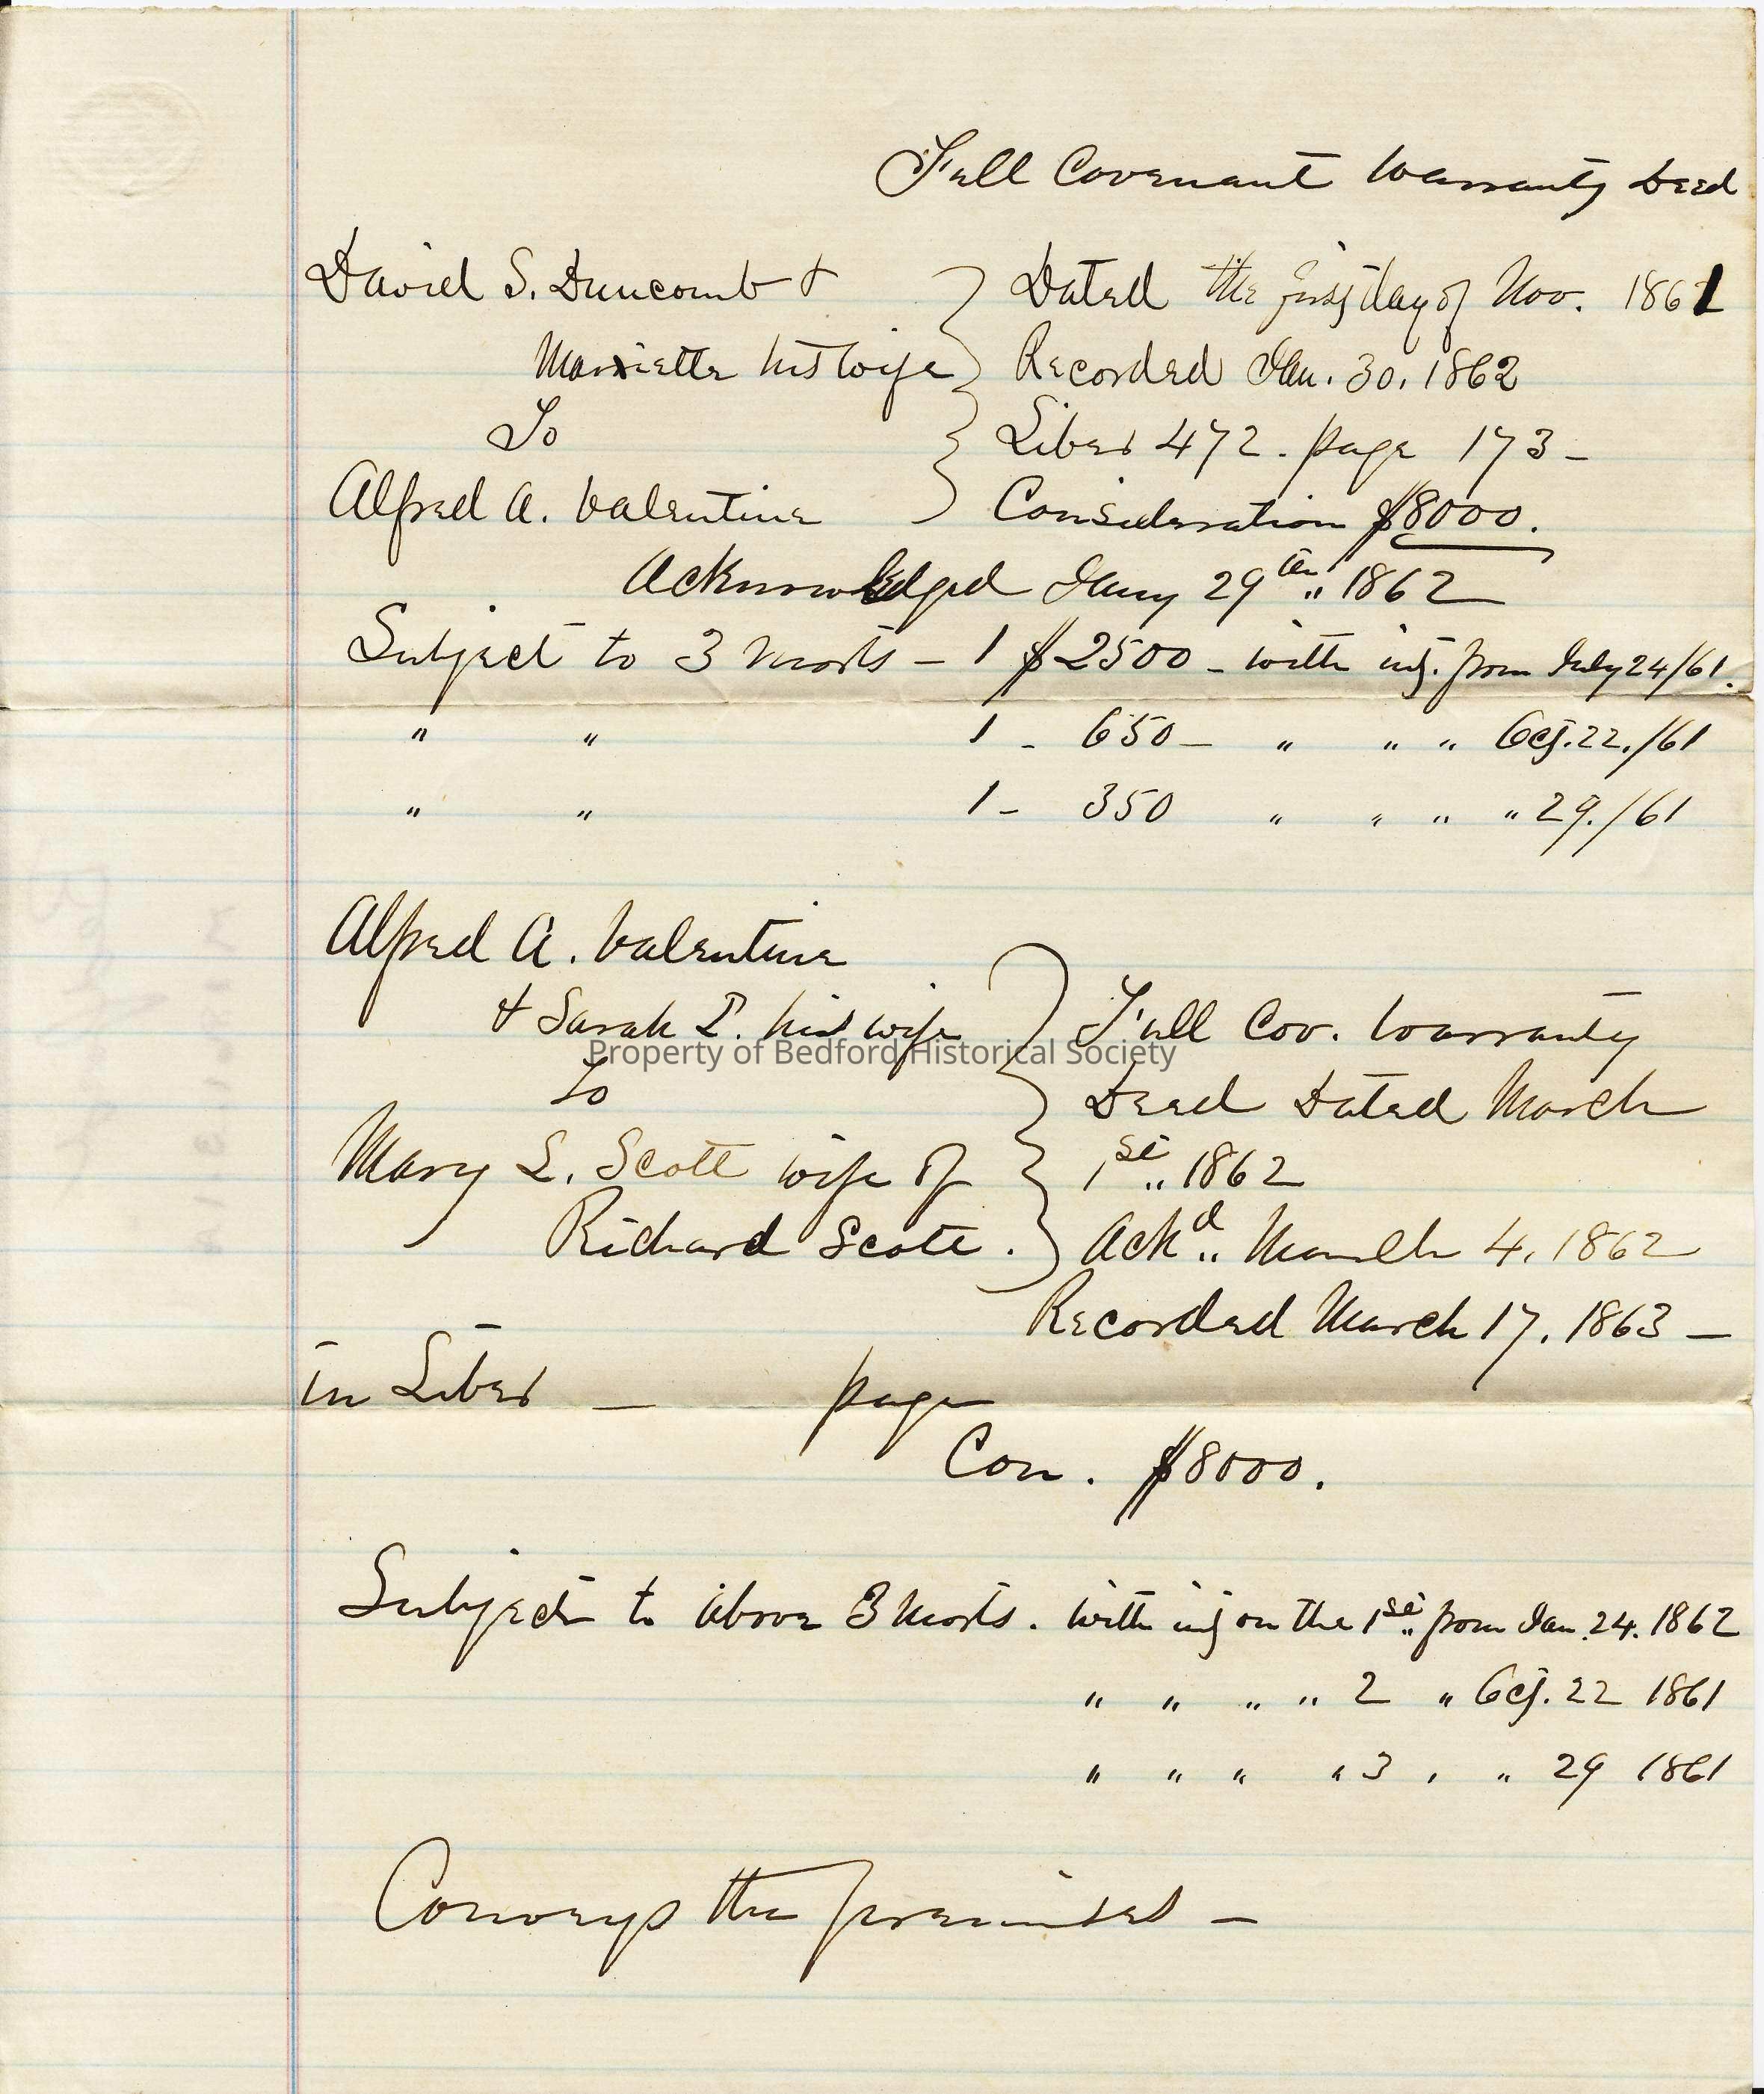 Full Covenant Warranty Deed
David S. Duncomb & } Dated the first day of Nov. 1861
Marrietta his wife } Recorded Jan. 30. 1862
To } Liber 472. page 173 -
Alfred A. Valentine } Consideration $8000.
Acknowledged Jany 29th 1862
Subject to 3 Morts - 1 $2500 - with int. from July 24/61.
" " 1 - 650 - " " " Oct. 22./61
" " 1 - 350 " " " " 29./61
Alfred A. Valentine
& Sarah P. his wife } Full Cov. Warranty
Property of Bedford Historical Society
To } Deed Dated March
Mary L. Scott wife of } 1st 1862
Richard Scott. } Ackd March 4, 1862
Recorded March 17. 1863 -
in Liber - page
Con. $8000.
Subject to above 3 Morts. with int on the 1st from Jan. 24. 1862
" " " " 2 " Oct. 22 1861
" " " " 3 " " 29 1861
Conveys the premises -